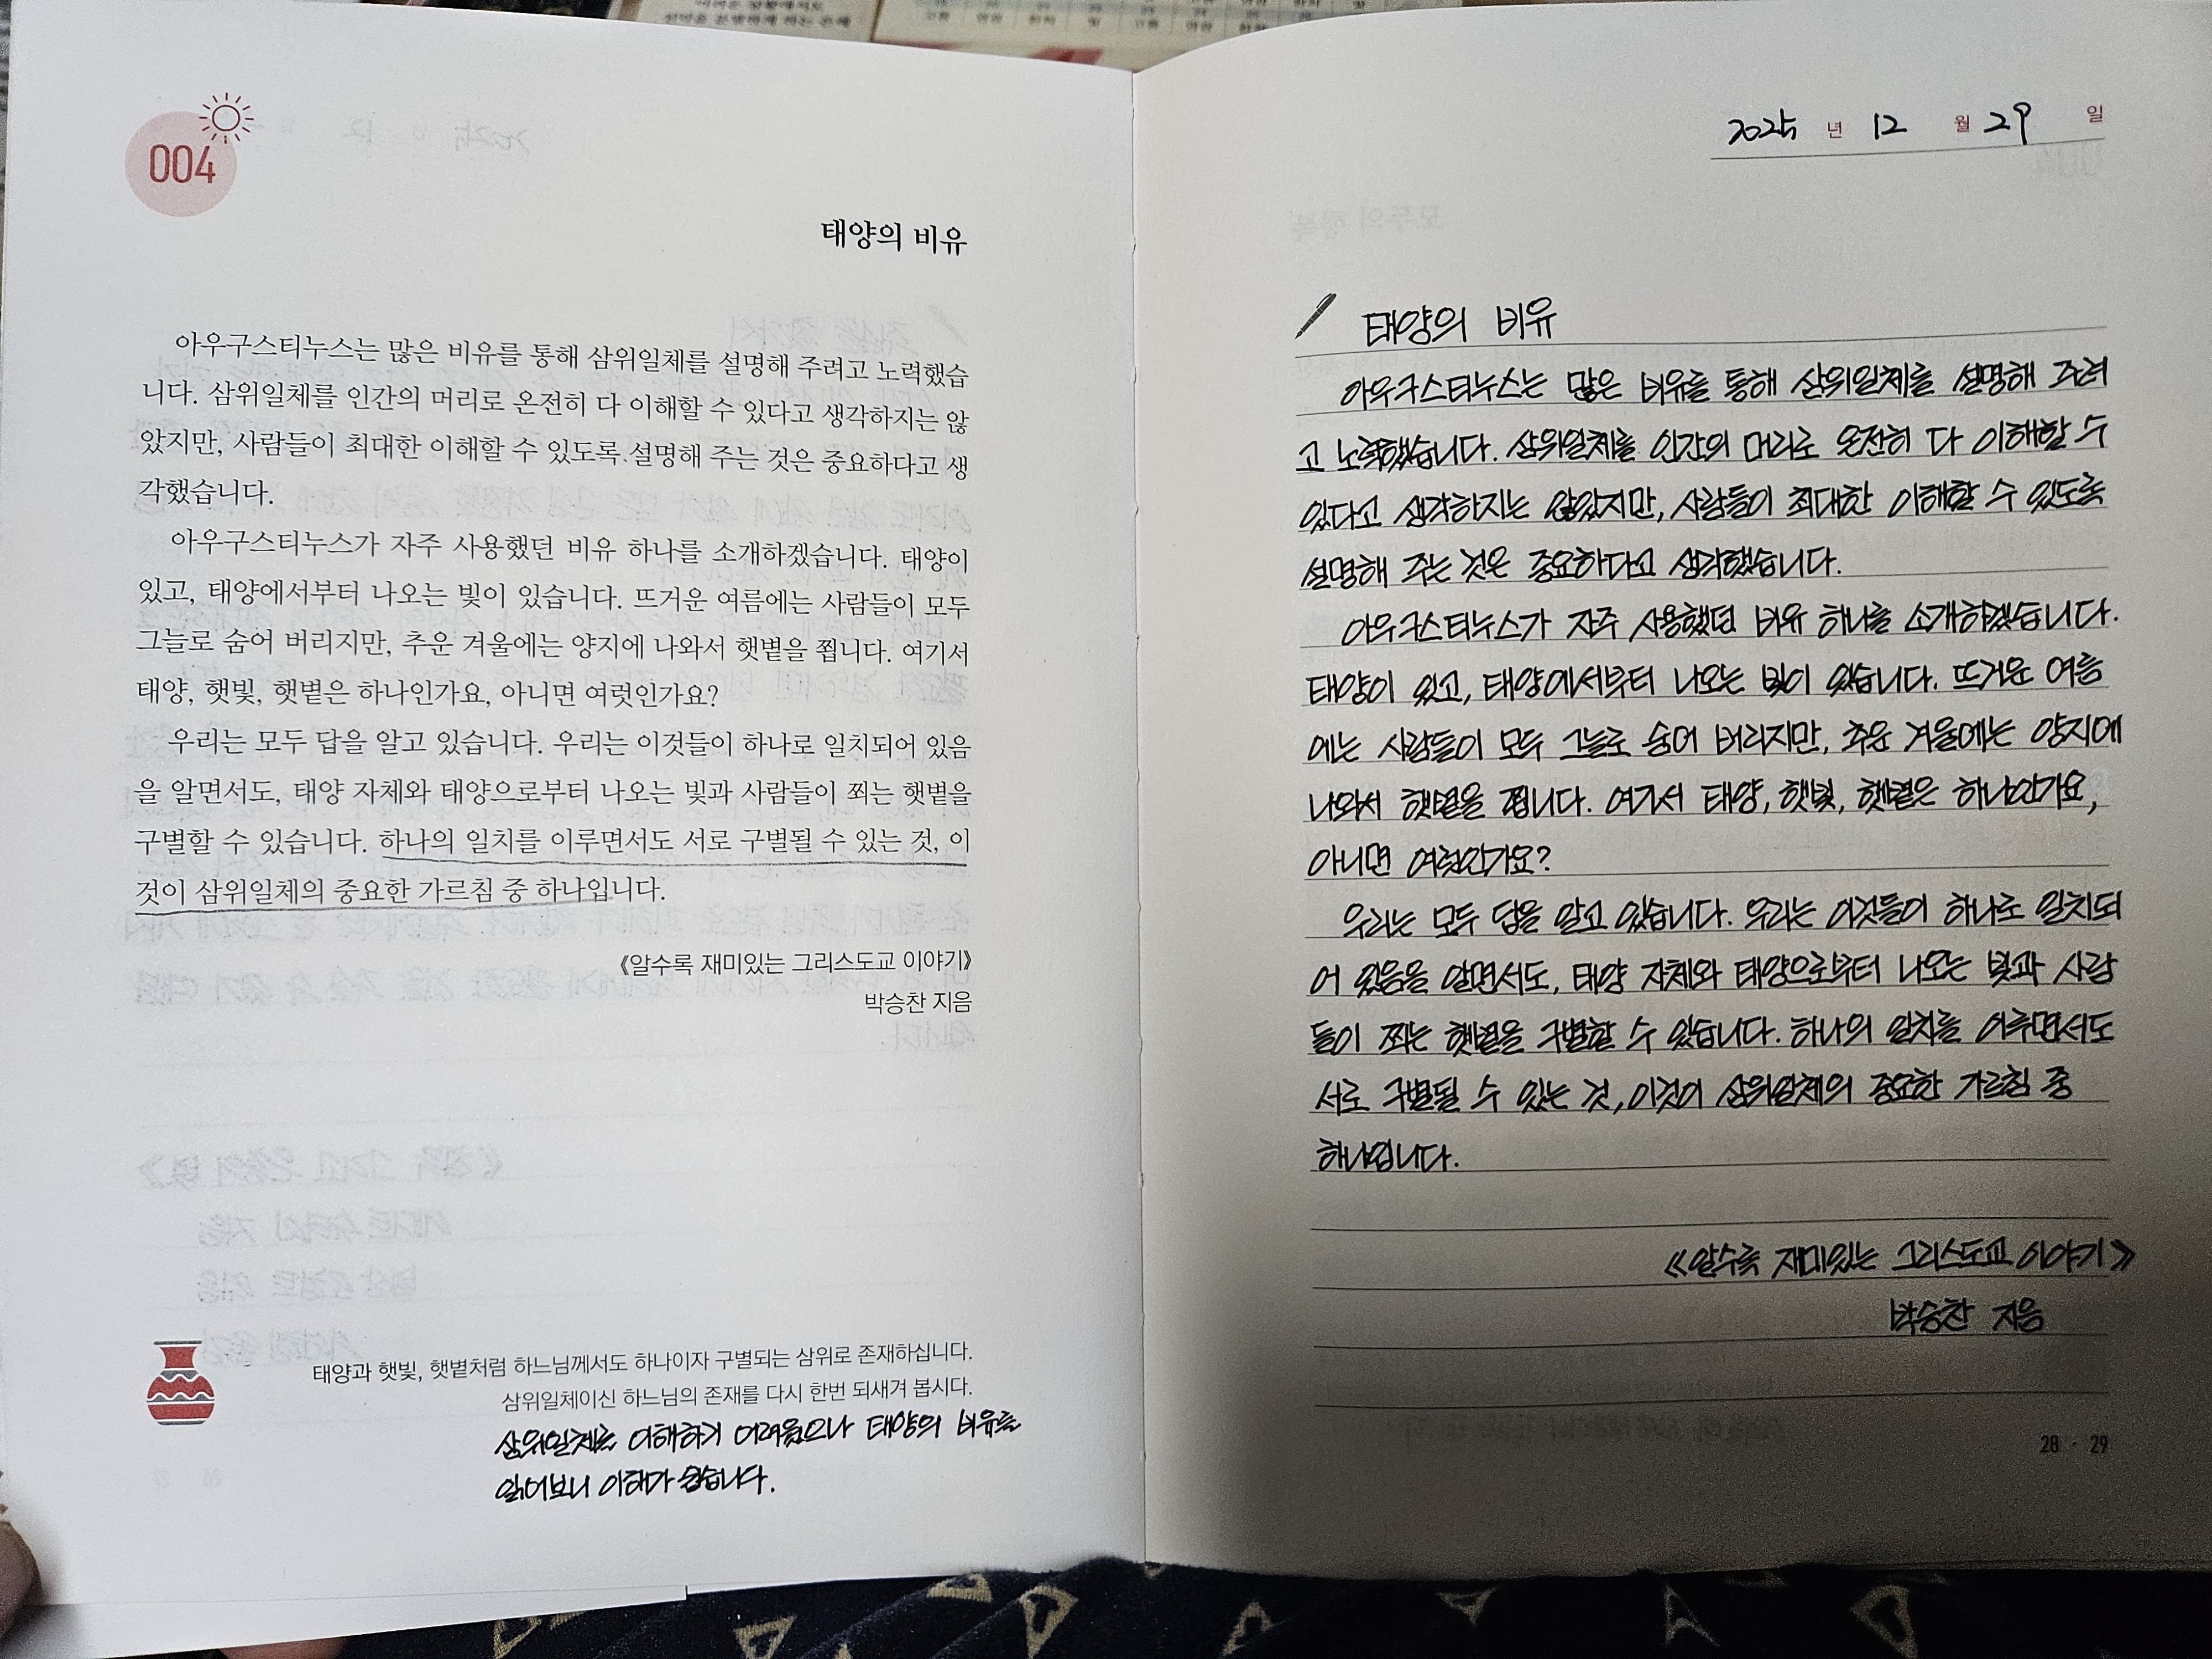 004
태양의 비유
아우구스티누스는 많은 비유를 통해 삼위일체를 설명해 주려고 노력했습
니다. 삼위일체를 인간의 머리로 온전히 다 이해할 수 있다고 생각하지는 않
았지만, 사람들이 최대한 이해할 수 있도록 설명해 주는 것은 중요하다고 생
각했습니다.
아우구스티누스가 자주 사용했던 비유 하나를 소개하겠습니다. 태양이
있고, 태양에서부터 나오는 빛이 있습니다. 뜨거운 여름에는 사람들이 모두
그늘로 숨어 버리지만, 추운 겨울에는 양지에 나와서 햇볕을 쬡니다. 여기서
태양, 햇빛, 햇볕은 하나인가요, 아니면 여럿인가요?
우리는 모두 답을 알고 있습니다. 우리는 이것들이 하나로 일치되어 있음
을 알면서도, 태양 자체와 태양으로부터 나오는 빛과 사람들이 쬐는 햇볕을
구별할 수 있습니다. 하나의 일치를 이루면서도 서로 구별될 수 있는 것, 이
것이 삼위일체의 중요한 가르침 중 하나입니다.
《알수록 재미있는 그리스도교 이야기》
박승찬 지음
태양과 햇빛, 햇볕처럼 하느님께서도 하나이자 구별되는 삼위로 존재하십니다.
삼위일체이신 하느님의 존재를 다시 한번 되새겨 봅시다.
삼위일체를 이해하기 어려웠으나 태양의 비유를
읽어보니 이해가 쉽습니다.
2025 년 12 월 29 일
태양의 비유
아우구스티누스는 많은 비유를 통해 삼위일체를 설명해 주려
고 노력했습니다. 삼위일체를 인간의 머리로 온전히 다 이해할 수
있다고 생각하지는 않았지만, 사람들이 최대한 이해할 수 있도록
설명해 주는 것은 중요하다고 생각했습니다.
아우구스티누스가 자주 사용했던 비유 하나를 소개하겠습니다.
태양이 있고, 태양에서부터 나오는 빛이 있습니다. 뜨거운 여름
에는 사람들이 모두 그늘로 숨어 버리지만, 추운 겨울에는 양지에
나와서 햇볕을 쬡니다. 여기서 태양, 햇빛, 햇볕은 하나인가요,
아니면 여럿인가요?
우리는 모두 답을 알고 있습니다. 우리는 이것들이 하나로 일치되
어 있음을 알면서도, 태양 자체와 태양으로부터 나오는 빛과 사람
들이 쬐는 햇볕을 구별할 수 있습니다. 하나의 일치를 이루면서도
서로 구별될 수 있는 것, 이것이 삼위일체의 중요한 가르침 중
하나입니다.
《알수록 재미있는 그리스도교 이야기》
박승찬 지음
28 · 29